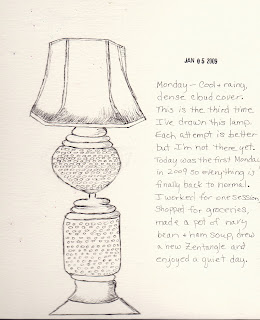 JAN 05 2009
Monday - Cool + rainy,
dense cloud cover.
This is the third time
I've drawn this lamp.
Each attempt is better
but I'm not there yet.
Today was the first Monday
in 2009 so everything is
finally back to normal.
I worked for one session,
shopped for groceries,
made a pot of navy
bean + ham soup, drew
a new Zentangle and
enjoyed a quiet day.